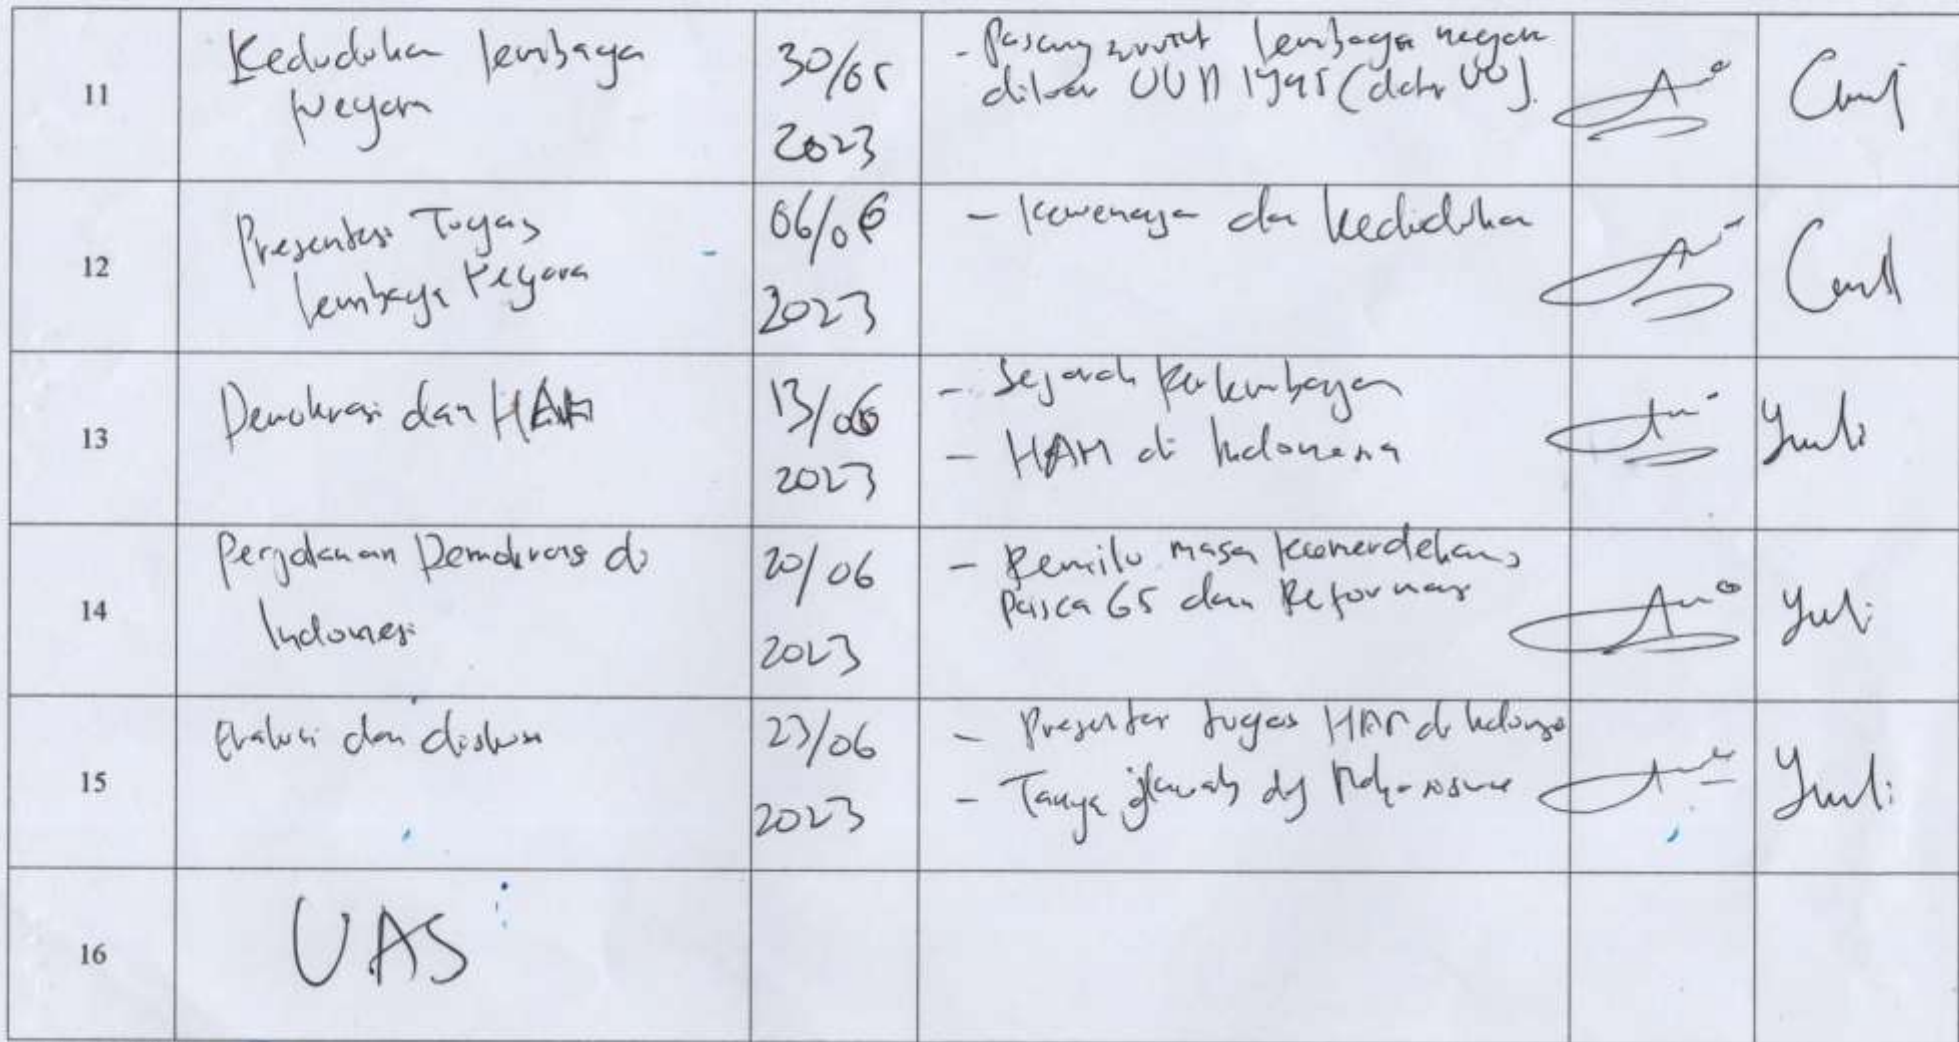 11
Kedudukan lembaga
Negara
30/05
2023
- lembaga negara
diluar UUD 1945 (dalam UU).
12
Presentasi Tugas
lembaga Negara
06/06
2023
- Kewenangan dan kedudukan
13
Demokrasi dan HAM
13/06
2023
- Sejarah perkembangan
- HAM di Indonesia
14
Perjalanan Demokrasi di
Indonesi
20/06
2023
- Pemilu masa kemerdekaan,
pasca 65 dan Reformasi
15
Evaluasi dan diskusi
23/06
2023
- Presentasi tugas HAM di Indonesia
- Tanya jawab dg
Yuli
Yuli
Yuli
16
UAS